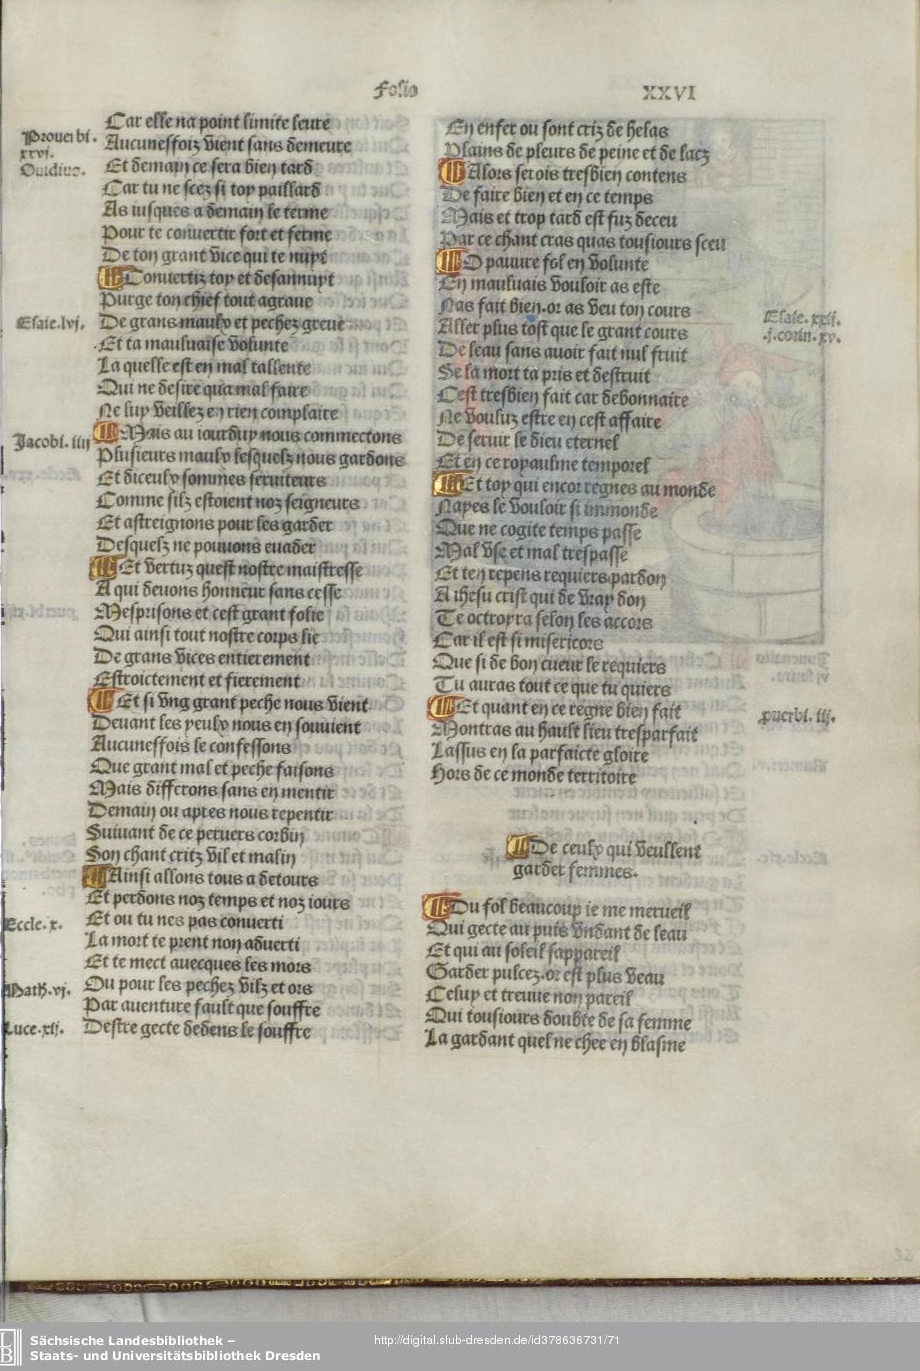 Folio XXVI
Prouerbi.
xxvi.
Ouidius.
Esaie.lvi.
Jacobi.iiij
Eccle.x.
Math.vi.
Luce.xij.
Car elle na point limite seure
Aucuneffoiz vient sans demeure
Et demain ce sera bien tard
Car tu ne scez si toy paillard
As iusques a demain le terme
Pour te conuertir fort et ferme
De ton grant vice qui te nuyt
Conuertiz toy et desannuyt
Purge ton chief tout agraue
De grans maulx et pechez greue
Et ta mauluaise volunte
La quelle est en mal tallente
Qui ne desire qua mal faire
Ne luy veillez en rien complaire
Mais au iourduy nous commectons
Plusieurs maulx lesquelz nous gardons
Et diceulx sommes seruiteurs
Comme silz estoient noz seigneurs
Et astreignons pour les garder
Desquelz ne pouuons euader
Et vertuz quest nostre maistresse
A qui deuons honneur sans cesse
Mesprisons et cest grant folie
Qui ainsi tout nostre corps lie
De grans vices entierement
Estroictement et fierement
Et si vng grant peche nous vient
Deuant les yeulx nous en souuient
Aucuneffois le confessons
Que grant mal et peche faisons
Mais differons sans en mentir
Demain ou apres nous repentir
Suiuant de ce peruers corbin
Son chant critz vil et malin
Ainsi allons tous a detours
Et perdons noz temps et noz iours
Et ou tu nes pas conuerti
La mort te prent non aduerti
Et te mect auecques les mors
Ou pour les pechez vilz et ors
Par auenture fault que souffre
Destre gecte dedens le souffre
En enfer ou sont criz de helas
Plains de pleurs de peine et de lacz
Alors serois tresbien contens
De faire bien et en ce temps
Mais et trop tard est fuz deceu
Par ce chant cras quas tousiours sceu
O pauure fol en volunte
En mauluais vouloir as este
Nas fait bien.or as veu ton cours
Aller plus tost que le grant cours
De leau sans auoir fait nul fruit
Se la mort ta pris et destruit
Cest tresbien fait car debonnaire
Ne vouluz estre en cest affaire
De seruir le dieu eternel
Et en ce royaulme temporel
Et toy qui encor regnes au monde
Nayes le vouloir si immonde
Que ne cogite temps passe
Mal vse et mal trespasse
Et ten repens requiers pardon
A ihesu crist qui de vray don
Te octroyra selon les accors
Car il est si misericors
Que si de bon cueur le requiers
Tu auras tout ce que tu quiers
Et quant en ce regne bien fait
Montras au hault lieu tresparfait
Lassus en la parfaicte gloire
Hors de ce monde territoire
De ceulx qui veullent
garder femmes.
Du fol beaucoup ie me merueil
Qui gecte au puis vndant de leau
Et qui au soleil sappareil
Garder pulcez.or est plus veau
Celuy et treuue non pareil
Qui tousiours doubte de sa femme
La gardant quel ne chee en blasme
Esaie.xxij.
.i.corin.xv.
puerbi.iij.
Sächsische Landesbibliothek –
Staats- und Universitätsbibliothek Dresden
http://digital.slub-dresden.de/id378636731/71